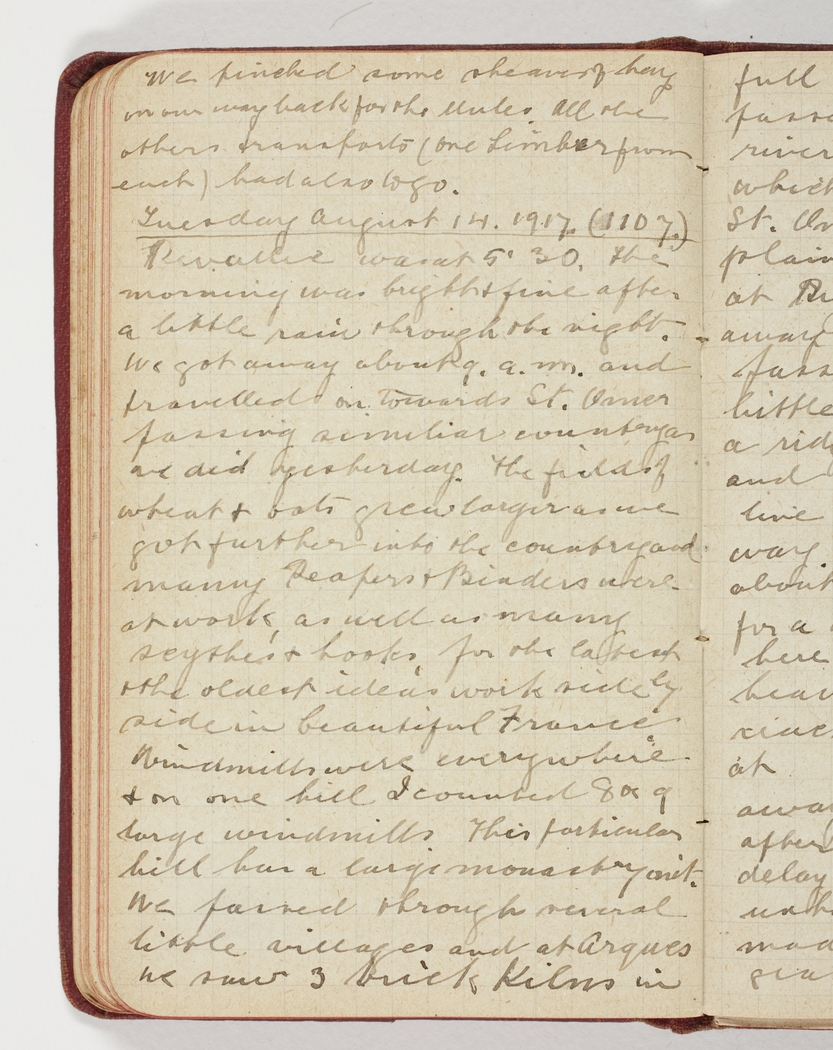 We pinched some sheaves of hay
on our way back for the Mules. All the
others transports (one Limber from
each) had also to go.
Tuesday August 14. 1917. (1107.)
Revallie was at 5' 30. The
morning was bright & fine after
a little rain through the night.
We got away about 9. a.m. and
travelled on towards St. Omer
passing similiar country as
we did yesterday. The fields of
wheat & oats grew larger as we
got further into the country and
many Reapers & Binders were
at work, as well as many
scythe's & hooks, for the latest
& the oldest idea's work side by
side in beautiful France.
Windmills were everywhere
& on one hill I counted 8 or 9
large windmills. This particular
hill has a large monastery on it.
We passed through several
little villages and at Arques
we saw 3 brick Kilns in
full
river
which
St. Om
plain
at
away
little
a rid
and
live
way
about
for a
here
at
away
after
delay
mad